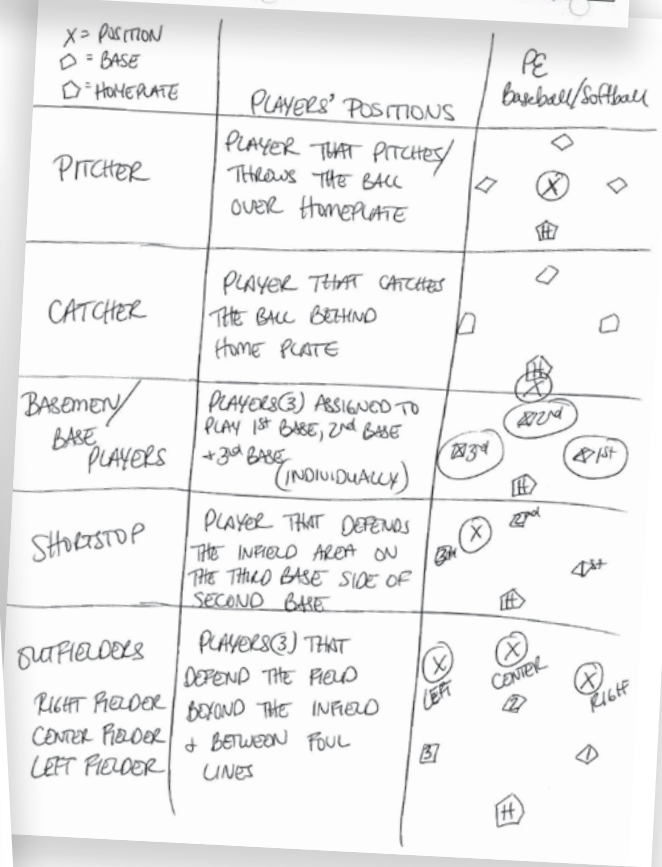 X = POSITION
= BASE
= HOMEPLATE
PLAYERS' POSITIONS
PE
Baseball/Softball
PITCHER
PLAYER THAT PITCHES/
THROWS THE BALL
OVER HOMEPLATE
X
H
CATCHER
PLAYER THAT CATCHES
THE BALL BEHIND
HOME PLATE
H
X
BASEMEN/
BASE
PLAYERS
PLAYERS(3) ASSIGNED TO
PLAY 1st BASE, 2nd BASE
+ 3rd BASE
(INDIVIDUALLY)
X 2nd
X 3rd
X 1st
H
SHORTSTOP
PLAYER THAT DEFENDS
THE INFIELD AREA ON
THE THIRD BASE SIDE OF
SECOND BASE
X
2nd
3rd
1st
H
OUTFIELDERS
RIGHT FIELDER
CENTER FIELDER
LEFT FIELDER
PLAYERS(3) THAT
DEFEND THE FIELD
BEYOND THE INFIELD
& BETWEEN FOUL
LINES
X
LEFT
X
CENTER
X
RIGHT
2
3
1
H